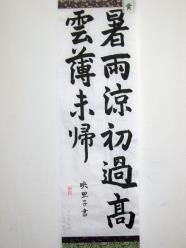 暑雨涼初過高
雲薄未帰
映里子書